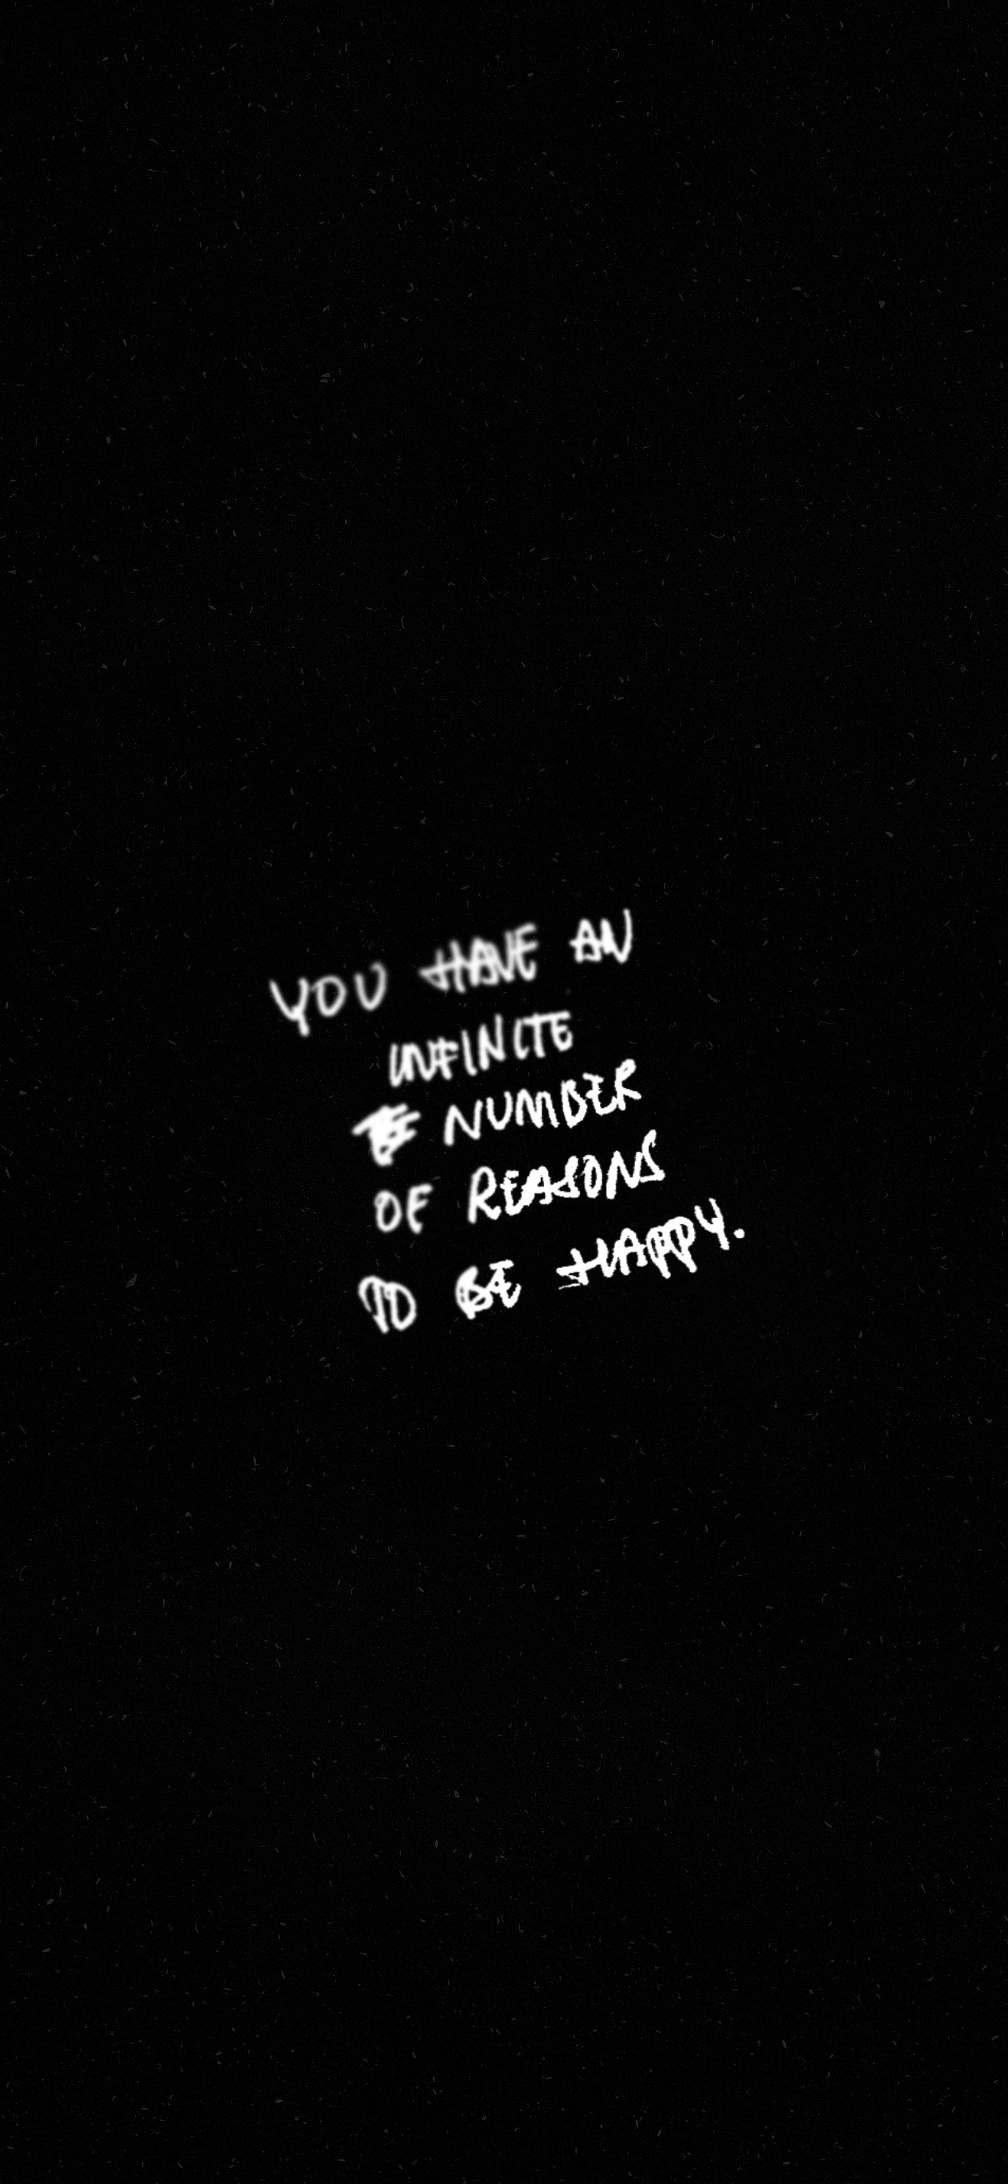 YOU HAVE AN
INFINITE
NUMBER
OF REASONS
TO BE HAPPY.